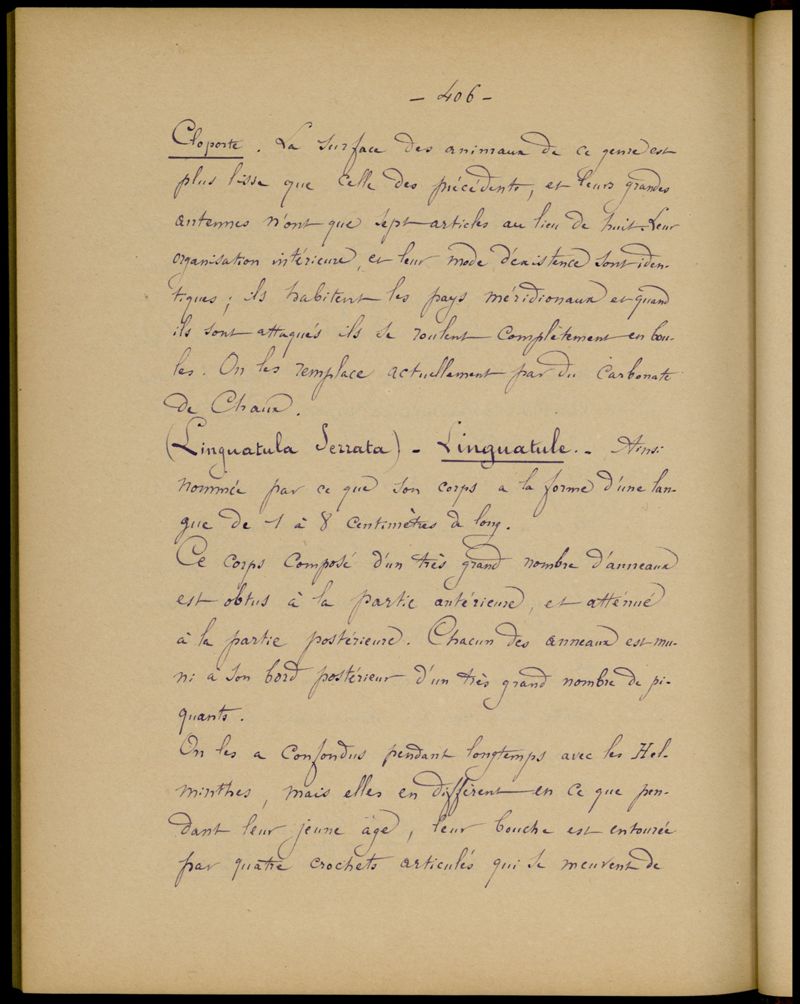 - 406 -
Cloporte. La surface des animaux de ce genre est
plus lisse que celle des précédents, et leurs grandes
antennes n'ont que sept articles au lieu de huit. Leur
organisation intérieure, et leur mode d'existence sont iden-
tiques; ils habitent les pays méridionaux et quand
ils sont attaqués ils se roulent complètement en bou-
les. On les remplace actuellement par du Carbonate
de Chaux.
(Linguatula Serrata) - Linguatule. - Ainsi
nommée par ce que son corps a la forme d'une lan-
gue de 1 à 8 centimètres de long.
Ce corps composé d'un très grand nombre d'anneaux
est obtus à la partie antérieure, et atténué
à la partie postérieure. Chacun des anneaux est mu-
ni à son bord postérieur d'un très grand nombre de pi-
quants.
On les a confondus pendant longtemps avec les Hel-
minthes, mais elles en diffèrent en ce que pen-
dant leur jeune âge, leur bouche est entourée
par quatre crochets articulés qui se meuvent de